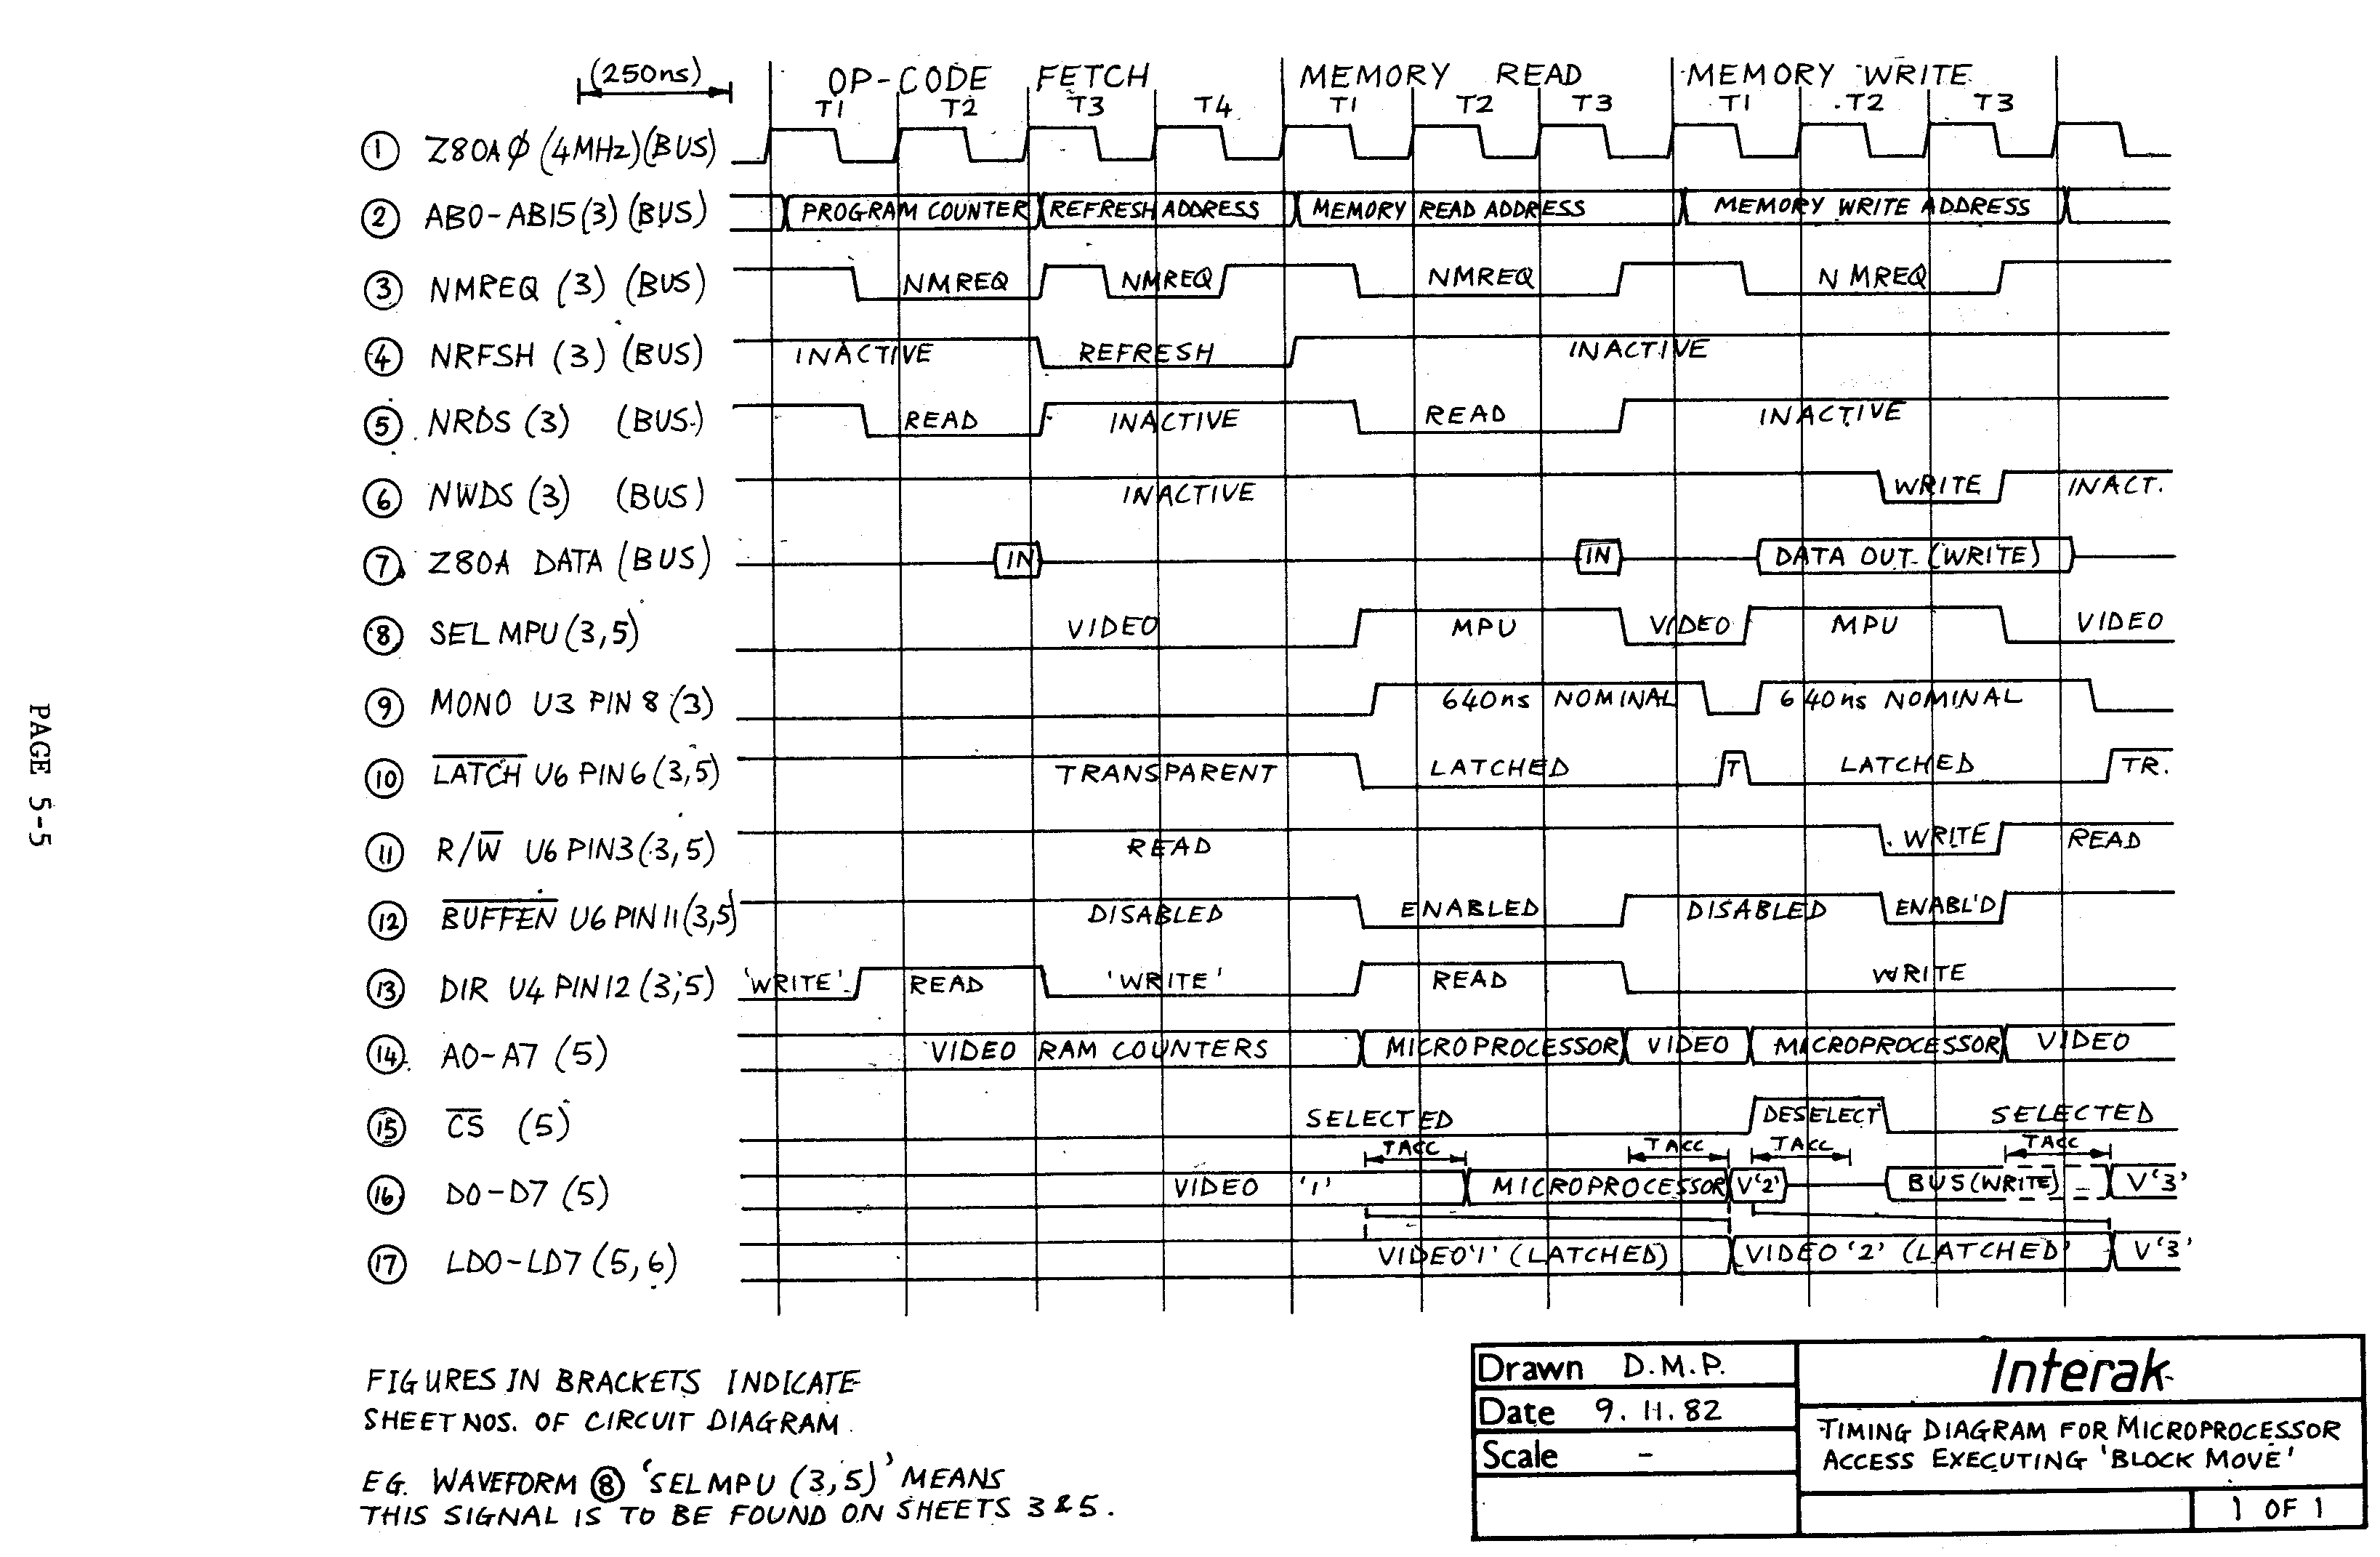 (250ns)
OP-CODE FETCH MEMORY READ MEMORY WRITE
T1 T2 T3 T4 T1 T2 T3 T1 T2 T3
① Z80A Ø (4MHz)(BUS)
② AB0-AB15(3)(BUS) PROGRAM COUNTER REFRESH ADDRESS MEMORY READ ADDRESS MEMORY WRITE ADDRESS
③ NMREQ (3) (BUS) NMREQ NMREQ NMREQ NMREQ
④ NRFSH (3) (BUS) INACTIVE REFRESH INACTIVE
⑤ NRDS (3) (BUS) READ INACTIVE READ INACTIVE
⑥ NWDS (3) (BUS) INACTIVE WRITE INACT.
⑦ Z80A DATA (BUS) IN IN DATA OUT (WRITE)
⑧ SEL MPU (3,5) VIDEO MPU VIDEO MPU VIDEO
⑨ MONO U3 PIN 8 (3) 640ns NOMINAL 640ns NOMINAL
⑩ L̅A̅T̅C̅H̅ U6 PIN 6 (3,5) TRANSPARENT LATCHED T LATCHED TR.
⑪ R/W̅ U6 PIN3 (3,5) READ WRITE READ
⑫ B̅U̅F̅F̅E̅N̅ U6 PIN 11 (3,5) DISABLED ENABLED DISABLED ENABL'D
⑬ DIR U4 PIN 12 (3,5) 'WRITE' READ 'WRITE' READ WRITE
⑭ A0-A7 (5) VIDEO RAM COUNTERS MICROPROCESSOR VIDEO MICROPROCESSOR VIDEO
⑮ C̅S̅ (5) SELECTED DESELECT SELECTED
TACC TACC TACC TACC
⑯ D0-D7 (5) VIDEO '1' MICROPROCESSOR V'2' BUS (WRITE) V'3'
⑰ LD0-LD7 (5,6) VIDEO '1' (LATCHED) VIDEO '2' (LATCHED' V'3'
FIGURES IN BRACKETS INDICATE
SHEET NOS. OF CIRCUIT DIAGRAM.
EG. WAVEFORM ⑧ 'SEL MPU (3,5)' MEANS
THIS SIGNAL IS TO BE FOUND ON SHEETS 3 & 5.
Drawn D.M.P.
Date 9.11.82
Scale -
Interak
TIMING DIAGRAM FOR MICROPROCESSOR
ACCESS EXECUTING 'BLOCK MOVE'
1 OF 1
PAGE 5-5